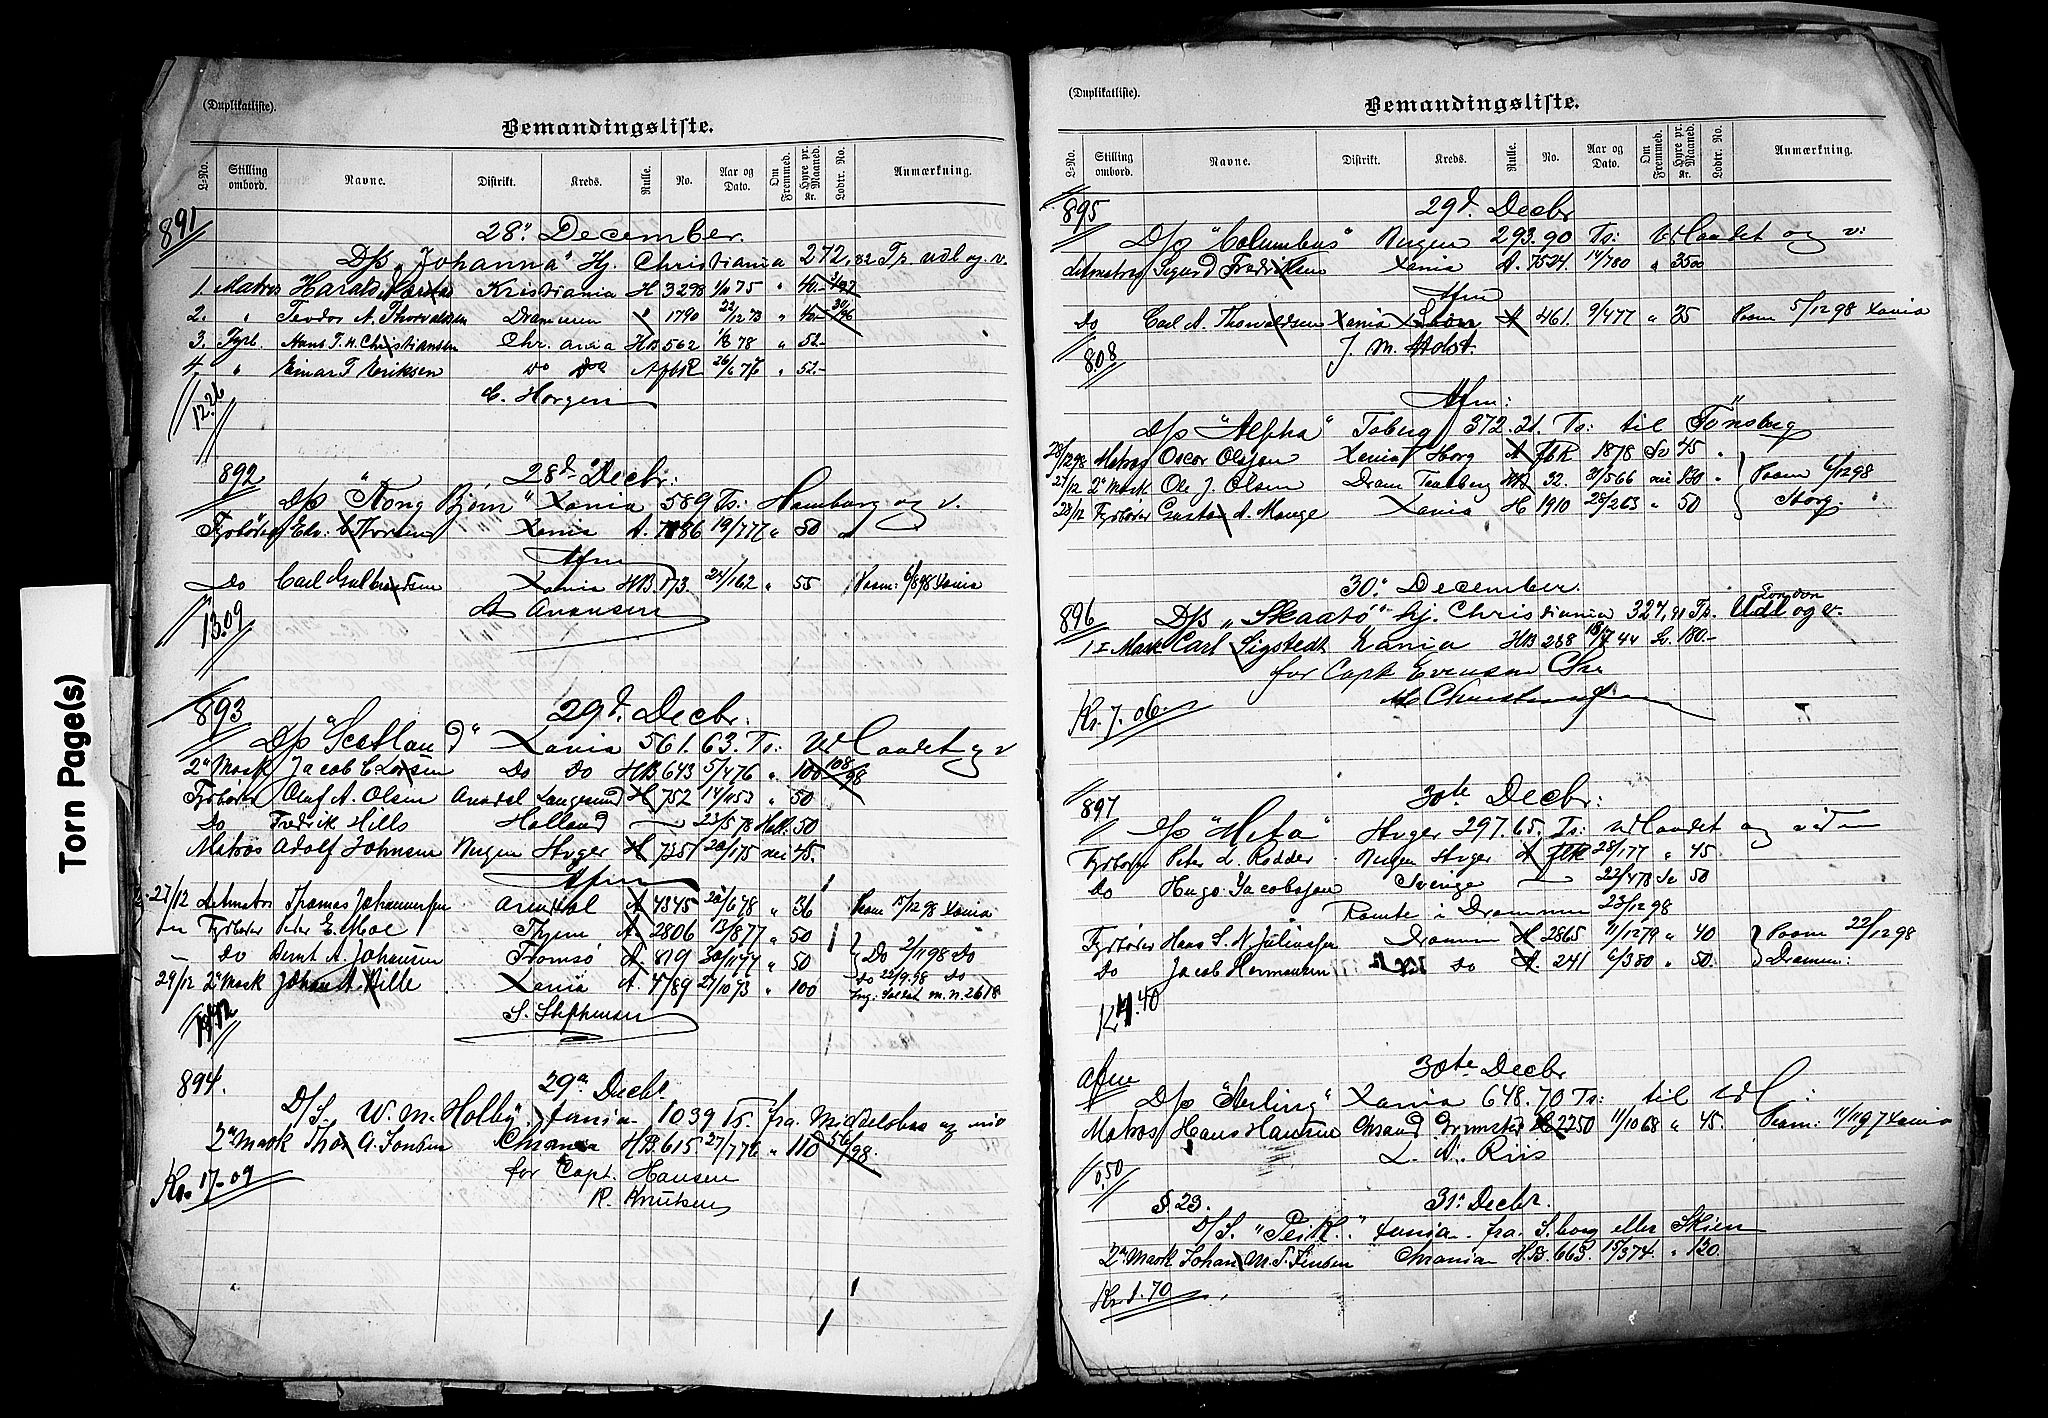 Torn Page(s)
(Duplikatliste).
Bemandingsliste.
L-No. Stilling ombord. Navne. Distrikt. Kreds. Rulle. No. Aar og Dato. Om Fremmed. Hyre pr. Maaned. Kr. Lodtr. No. Anmærkning.
891
28' December.
D/s "Johanna" Hj. Christiania 272,82 T. Udl og v.
1 Matros Harald Kristiania H 3298 1/10 75 " 40.-
2. " Teodor A. Thorvaldsen Drammen " 1790 22/12 73 " 45.-
3. Fyrb. Hans T. H. Christiansen Chr. ania HB 562 1/8 78 " 52.-
4. " Einar T. Eriksen do do AfbR 26/6 76 " 52.-
C. Horgen
12.26
892 28d Decbr:
D/s "Kong Bjørn" Xania 589 Ts: Hamburg og v.
Fyrbøder Edv: Xania A. 7186 19/777 " 50
Afm
Do Carl Gulbrandsen Xania HB 173. 24/162 " 55 Paam: 6/898 Xania
A Anonsen
13.09
893 29d. Decbr.
D/s "Scotland" Xania 561.63. Ts: Udlandet og v
2' Mask Jacob C Larsen Do Do HB 643 5/476 " 100 108/98
Fyrbøder Oluf A. Olsen Arendal Langesund H 752 14/1153 " 50
Do Fredrik Hills Holland 23/5 78 Holl. 50
Matros Adolf Johnsen Bergen Stvger H 7251 20/175 nei 45.
Afm
27/12 Letmatros Thomas Johannesen Arendal A 4345 20/678 " 36 Paam 15/12 98 Xania
Fyrbøder Peter E. Moe Thjem A 2806 13/877 " 50
Do Bernt A. Johansen Tromsø A 819 30/1177 " 50 Do 2/1198 Do
29/12 2' Mask Johan A. Hille Xania A. 4789 27/1073 " 100 Do 22/9.98 Do
m. n. 2618
S. Stephensen
894. 29a Decbr.
D/S. W. M. Holby. Xania 1039 Ts. fra Middelsbro og vid
2' Mask Thor A. Jensen Chrania HB 615 27/776 " 110 56/98.
for Capt. Hansen
R. Knutsen
Kr. 17-09
(Duplikatliste).
Bemandingsliste.
L-No. Stilling ombord. Navne. Distrikt. Kreds. Rulle. No. Aar og Dato. Om Fremmed. Hyre pr. Maaned. Kr. Lodtr. No. Anmærkning.
895 29d. Decbr
D/s "Columbus" Bergen 293.90 Ts: Udlandet og v:
Letmatros Sigurd Fredriksen Xania A. 7524 14/780 " 3500
Afm
Do Carl A. Thorvaldsen Xania A 461. 9/477 " 35 Paam 5/1298 Xania
J. M. Holst.
8.08
Afm:
D/s "Alpha" Tsberg 372.21. Ts: til Tönsberg
28/12 98 Matros Oscar Olsson Xania Horg A fbR 1878 Sv 45
27/12 2' Mask Ole J. Olsen Dram Tsberg HB 32. 31/566 nei 130 Paam 6/1298
28/12 Fyrbøder Gustav A. Mange Xania H 1910 28/263 " 50 Horg.
30' December.
896 D/s "Skaatø" hj. Christiania 327,91 T. London Udl og v.
1' Mask Carl Sigstedt Xania HB 238 18/7 44 Sv. 180.-
for Capt Evensen
Kr. 7.06.
897 30te Decbr:
D/s "Meta" Stvger 297.65. Ts: udlandet og viden
Fyrbøder Peter L. Rødder Bergen Stvger A fbR 28/177 " 45.
Do Hugo Jacobsson Sverige 22/478 Sv 50
Rømte i Drammen 23/12 98
Fyrbøder Hans S. N. Juliussen Drammen H 2865 11/1279 " 40 Paam 22/12 98
Do Jacob Hermansen Do A. 241 6/380 " 50. Drammen:
K 11.40
Afm 30te Decbr
D/s "Sterling" Xania 648.70 Ts: til Udl:
Matros Hans Hansen Chrsand Grimstad H 2250 11/1068 " 45. Paam: 11/1197 Xania
L. A. Riis
0,50
§ 23. 31' Decbr.
D/S. "Peik." Xania. fra S.borg eller Skien
2' Mask Johan M. T. Jensen Chrania HB. 663. 15/374. " 120.
Kr. 1.70